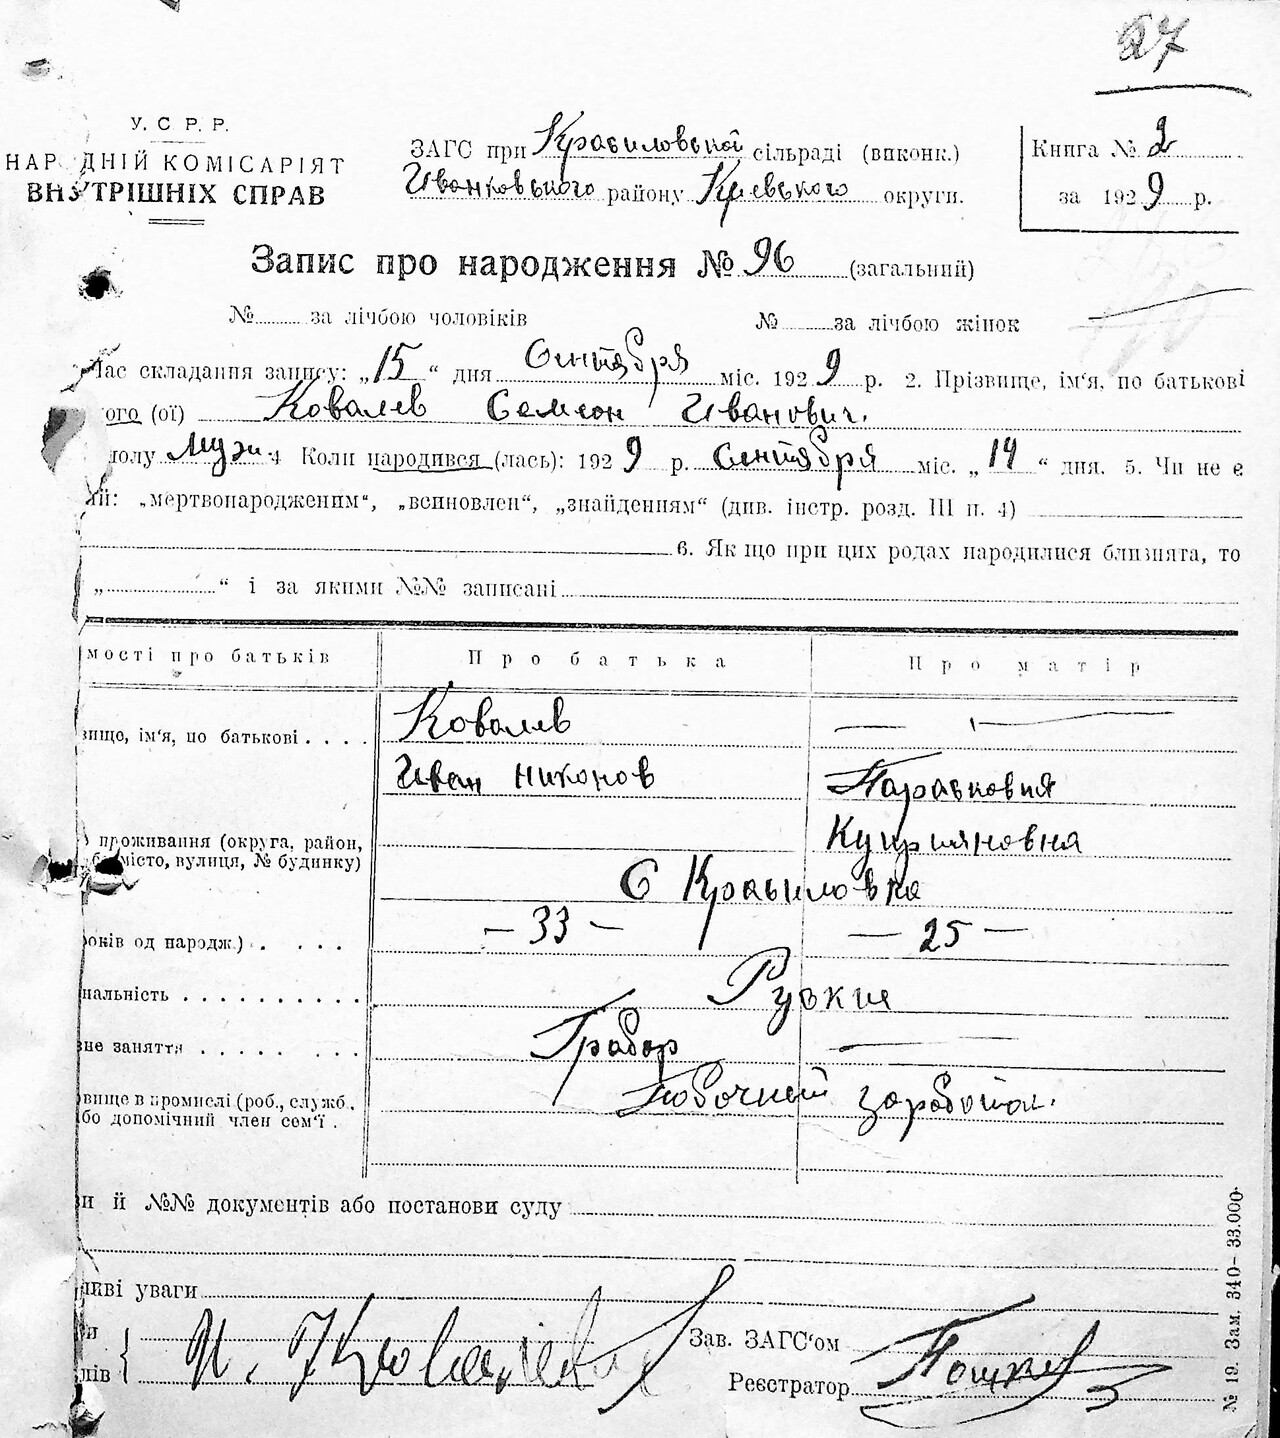 27
У. С Р. Р.
НАРОДНІЙ КОМІСАРІЯТ
ВНУТРІШНІХ СПРАВ
ЗАГС при Красиловської сільраді (виконк.)
Иванковського району Киевського округи.
Книга № 2
за 1929 р.
Запис про народження № 96 (загальний)
№ за лічбою чоловіків № за лічбою жінок
Час складання запису: „15“ дня Сентября міс. 1929 р. 2. Прізвище, ім'я, по батькові
ого (ої) Ковалев Семеон Иванович.
полу Муж. 4 Коли народився (лась): 1929 р. Сентября міс. „14“ дня. 5. Чи не є
ий: „мертвонародженим“, „вспновлен“, „знайденням“ (див. інстр. розд. III п. 4)
6. Якщо при цих родах народилися близнята, то
„ “ і за якими №№ записані
мості про батьків Про батька Про матір
вище, ім'я, по батькові . . . . Ковалев —
Иван Никонов Парасковия
Куприяновна
проживання (округа, район,
місто, вулиця, № будинку)
С Красиловка
років од народж.) . . . . — 33 — — 25 —
нальність . . . . . . . . . . Руские
не заняття . . . . . . . . Грабар —
вище в промислі (роб., служб.,
бо допомічний член сем'ї . Побочный заработок.
и й №№ документів або постанови суду
ливі уваги
ки
лів { И. Ковалев
Зав. ЗАГС'ом
Реєстратор
№ 19. Зам. 340—33.000.